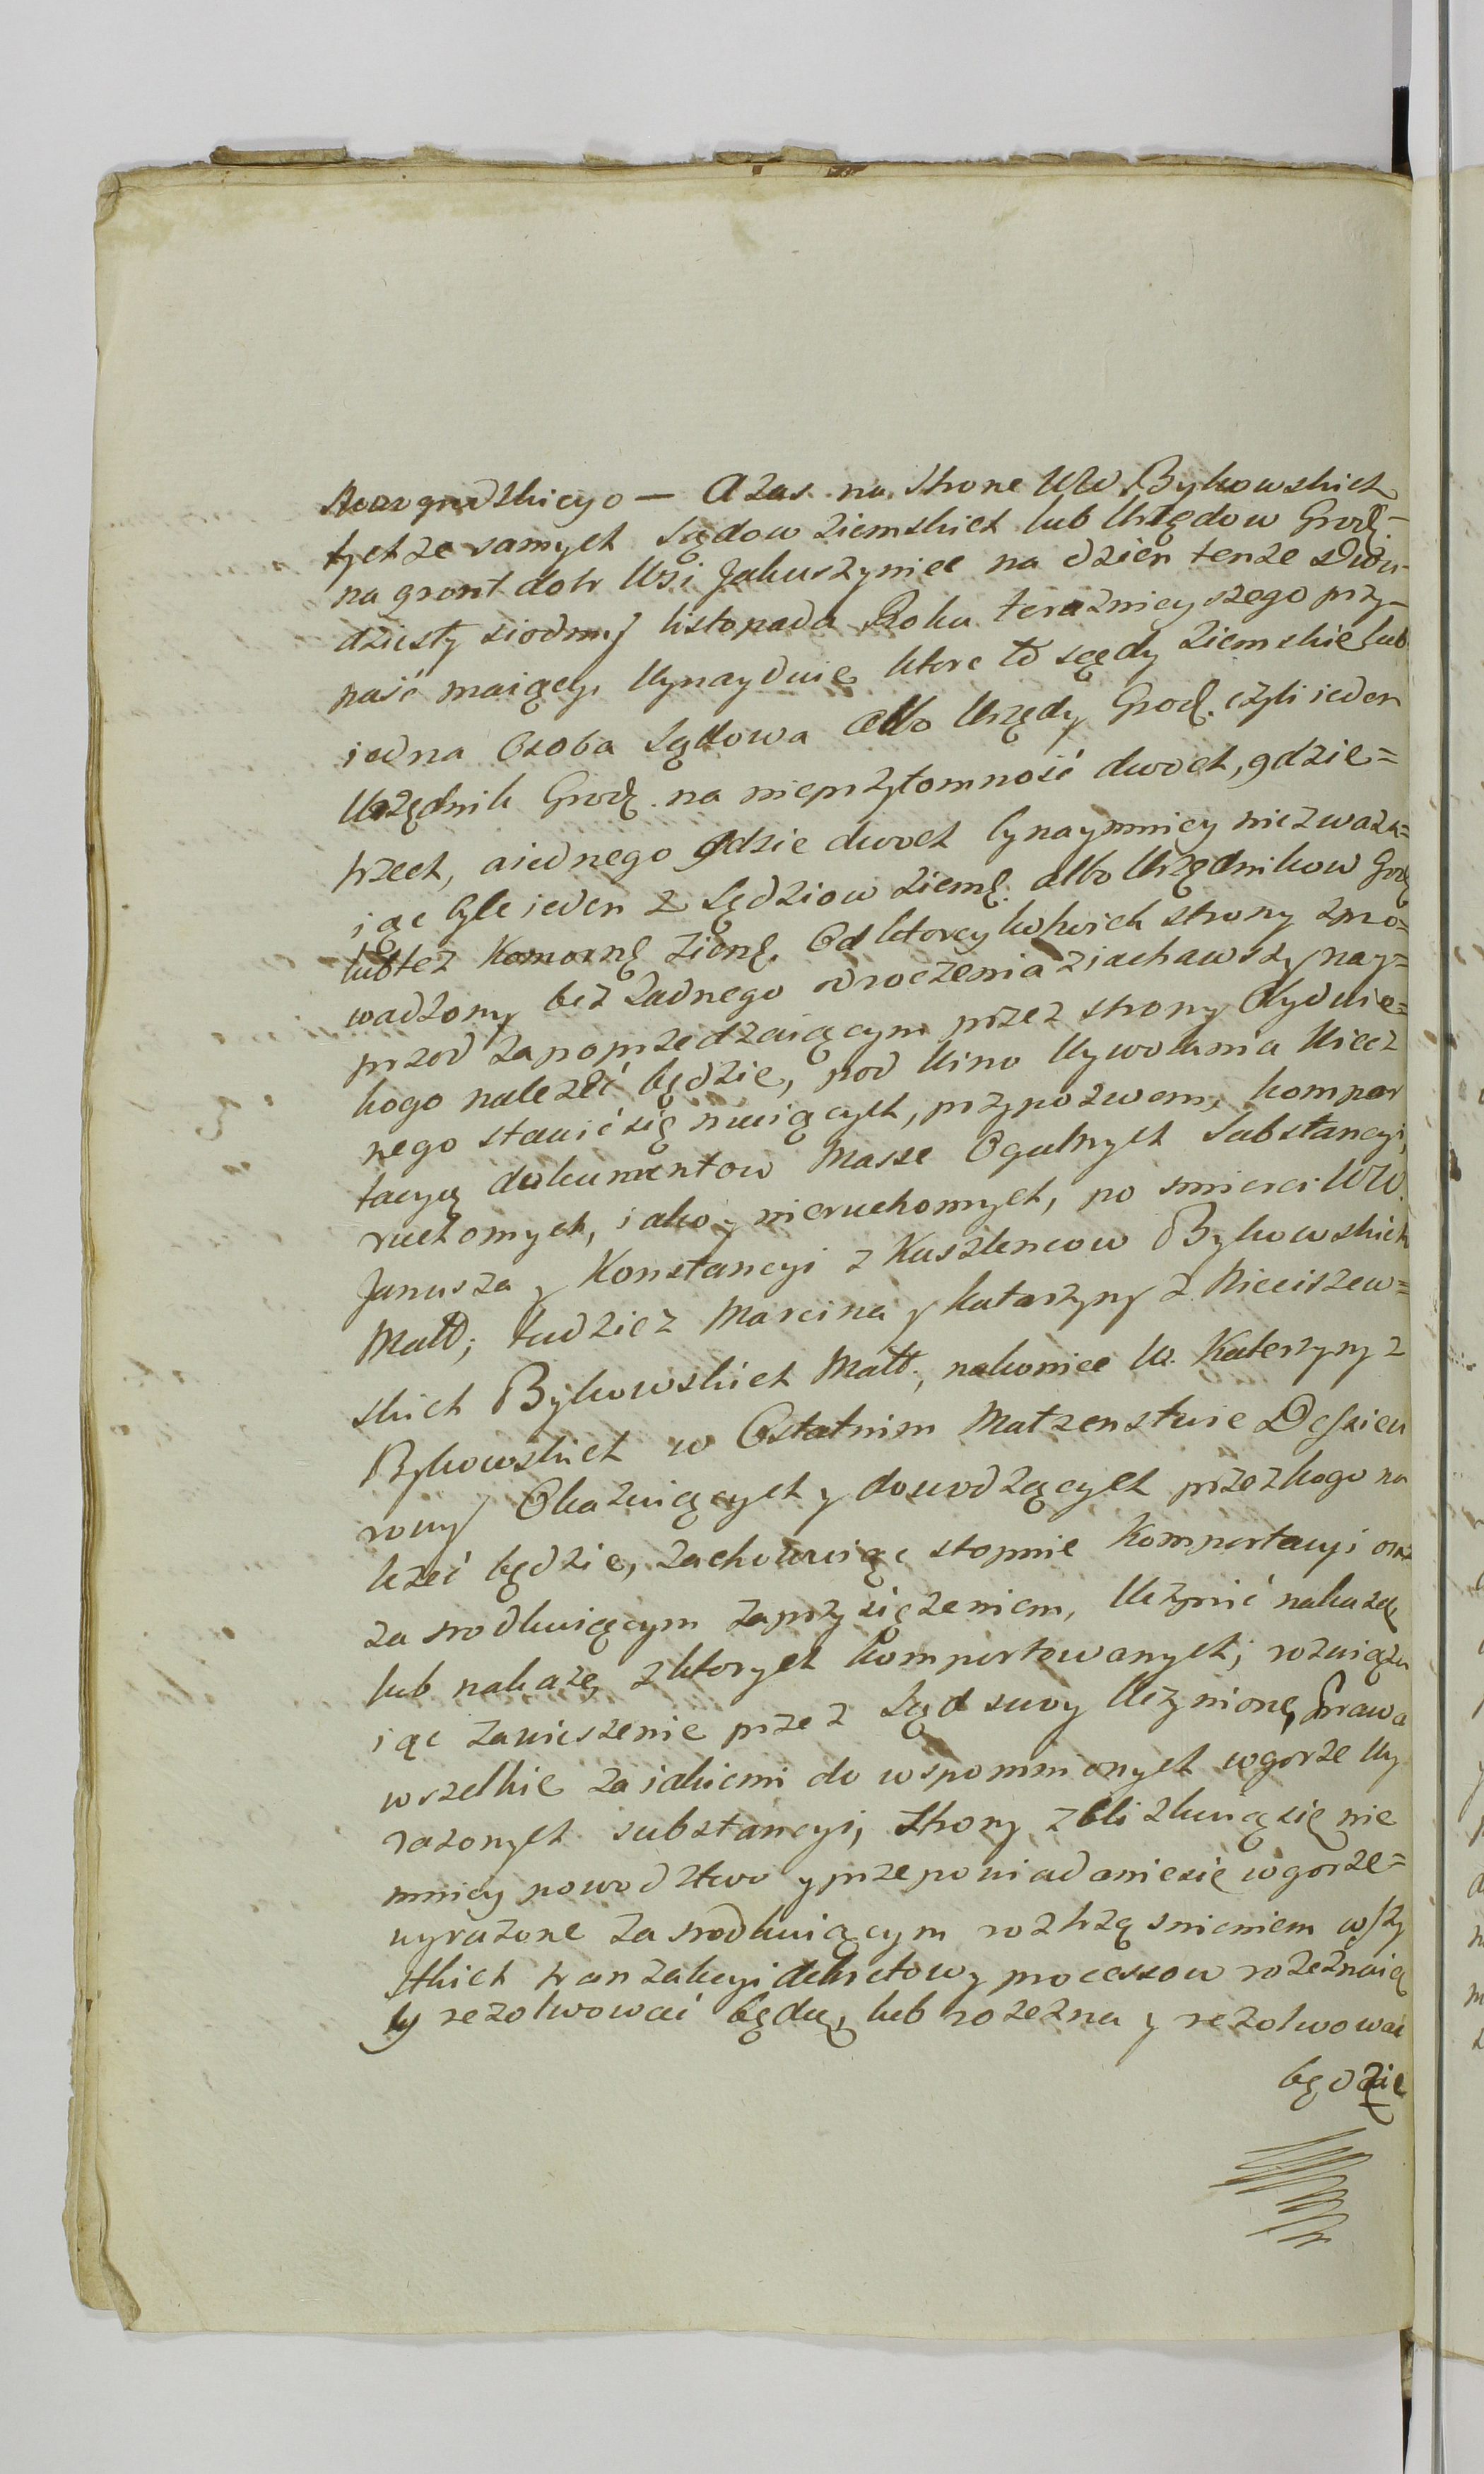 Nowogrodzkiego — A zas na Strone WW Bykowskich
tychze samych Sądow Ziemskich lub Urzędow Grodz.
na gront dobr Wsi Jakuszyniec na dzien tenze Dwu-
dziesty siodmy listopada Roku teraznieyszego przy-
paść maiący, Wynayduie, ktore to sądy Ziemskie lub
iedna Osoba Sądowa albo Urzędy Grodz. czyli ieden
Urzędnik Grodz. na nieprzytomność dwoch, gdzie=
trzech, a iednego gdzie dwoch bynaymniey nie zwaza=
iąc byle ieden z Sędziow Ziems. albo Urzędnikow Grodz
lub tez Komorn. Ziems. Od ktorey kolwiek strony spro=
wadzony bez zadnego odroczenia ziachawszy nay=
przod za poprzedzaiącym przez strony Oyduie=
kogo nalezeć będzie, pod Wino Wywołania Wiecz
nego stawić się nieiących, przypozwem, kompor
tacyą dokumentow Masse Ogulnych Substancyi,
ruchomych, iako y nieruchomych, po smierci WW.
Janusza y Konstancyi z Kaszlencow Bykowskich
Małż; tudziez Marcina y Katarzyny z Nieciszew=
skich Bykowskich Małż., nakoniec W. Katerzyny z
Bykowskich w Ostatnim Małzenstwie Deszien
rowy Okazuiących y dowodzących przez kogo na
lezeć będzie, zachowuiąc stopnie Komportacyi oraz
za srodkuiącym zaprzysięzeniem, Uczynić nakazą
lub nakaze, z ktorych komportowanych; rozwiązu
iąc zawieszenie przez Sąd swoy Uczynione, Prawa
wszelkie za iakiemi do wspomnionych wgorze Wy
razonych substancyi, Strony zbliskuią się nie
mniey powodztwo y przepowiadanie się wgorze=
wyrazone za srodkuiącym roztrząsnieniem wszy
stkich tranzakcyi dekretow y processow rozeznaią
y rezolwować będą, lub rozezna y rezolwować
będzie